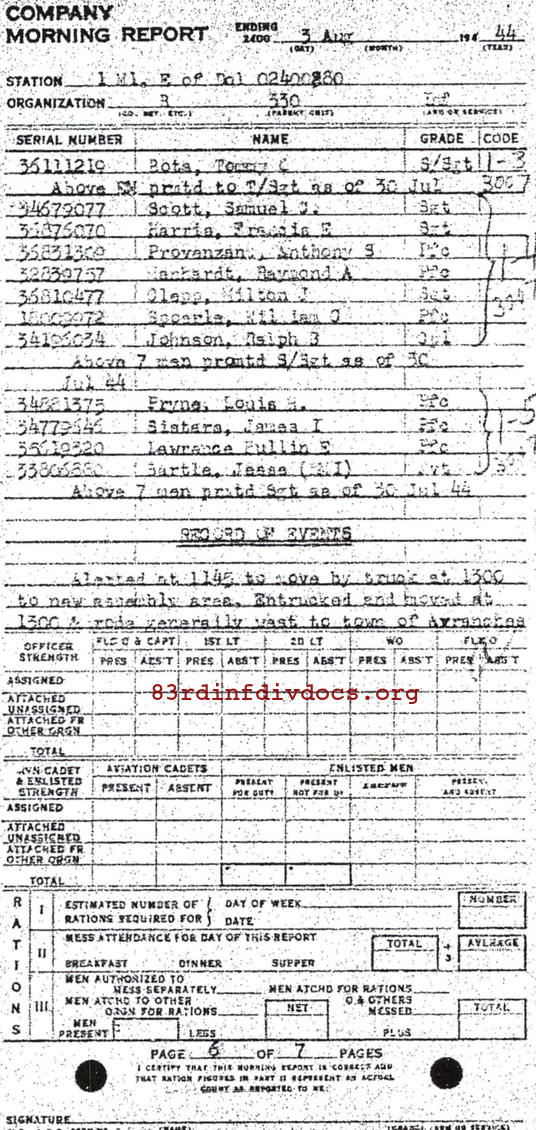 COMPANY
MORNING REPORT ENDING 2400 3 Aug 194 44
(DAY) (MONTH) (YEAR)
STATION 1 Mi. E of Dol 02400880
ORGANIZATION 330 Inf
(CO., DET., ETC.) (PARENT UNIT) (ARM OR SERVICE)
SERIAL NUMBER NAME GRADE CODE
36111219 Tommy C S/Sgt 1-3
Above EM prmtd to T/Sgt as of 30 Jul
34679077 Scott, Samuel J. Sgt
Harris, Francis E Sgt
Anthony S Pfc
32839757 Raymond A Pfc
36810477 Milton J Sgt
William O Pfc
34196034 Johnson, Ralph B Cpl
Above 7 men promtd S/Sgt as of 30
Jul 44
34881375 Pryne, Louis H. Pfc
James I Pfc
Lawrance Pullin E Pfc
Jesse (NMI) Pvt
Above 7 men prmtd Sgt as of 30 Jul 44
RECORD OF EVENTS
Alerted at 1145 to move by truck at 1300
to new assembly area. Entrucked and moved at
1300 & rode generally west to town of Avranches
OFFICER STRENGTH FLD O & CAPT 1ST LT 2D LT WO FLT O
PRES ABS'T PRES ABS'T PRES ABS'T PRES ABS'T PRES ABS'T
ASSIGNED
83rdinfdivdocs.org
ATTACHED UNASSIGNED
ATTACHED FR OTHER ORGN
TOTAL
AVN CADET & ENLISTED STRENGTH AVIATION CADETS ENLISTED MEN
PRESENT ABSENT PRESENT FOR DUTY PRESENT NOT FOR DY ABSENT PRESENT AND ABSENT
ASSIGNED
ATTACHED UNASSIGNED
ATTACHED FR OTHER ORGN
TOTAL
RATIONS
I ESTIMATED NUMBER OF RATIONS REQUIRED FOR { DAY OF WEEK DATE NUMBER
II MESS ATTENDANCE FOR DAY OF THIS REPORT TOTAL ÷ 3 AVERAGE
BREAKFAST DINNER SUPPER
III MEN AUTHORIZED TO MESS SEPARATELY MEN ATCHD FOR RATIONS
MEN ATCHD TO OTHER ORGN FOR RATIONS NET O & OTHERS MESSED TOTAL
MEN PRESENT LESS PLUS
PAGE 6 OF 7 PAGES
I CERTIFY THAT THIS MORNING REPORT IS CORRECT AND
THAT RATION FIGURES IN PART II REPRESENT AN ACTUAL
COUNT AS REPORTED TO ME:
SIGNATURE